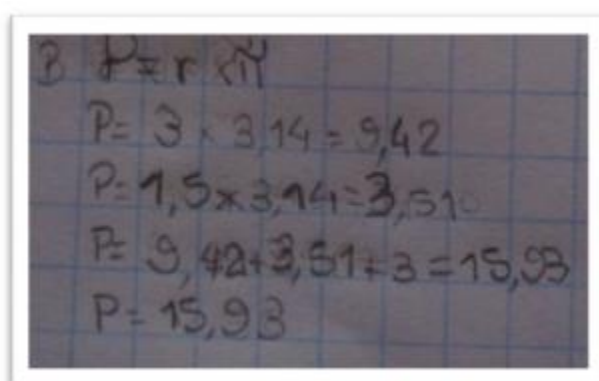 B P = r × π
P = 3 × 3,14 = 9,42
P = 1,5 × 3,14 = 3,510
P = 9,42 + 3,51 + 3 = 15,93
P = 15,93